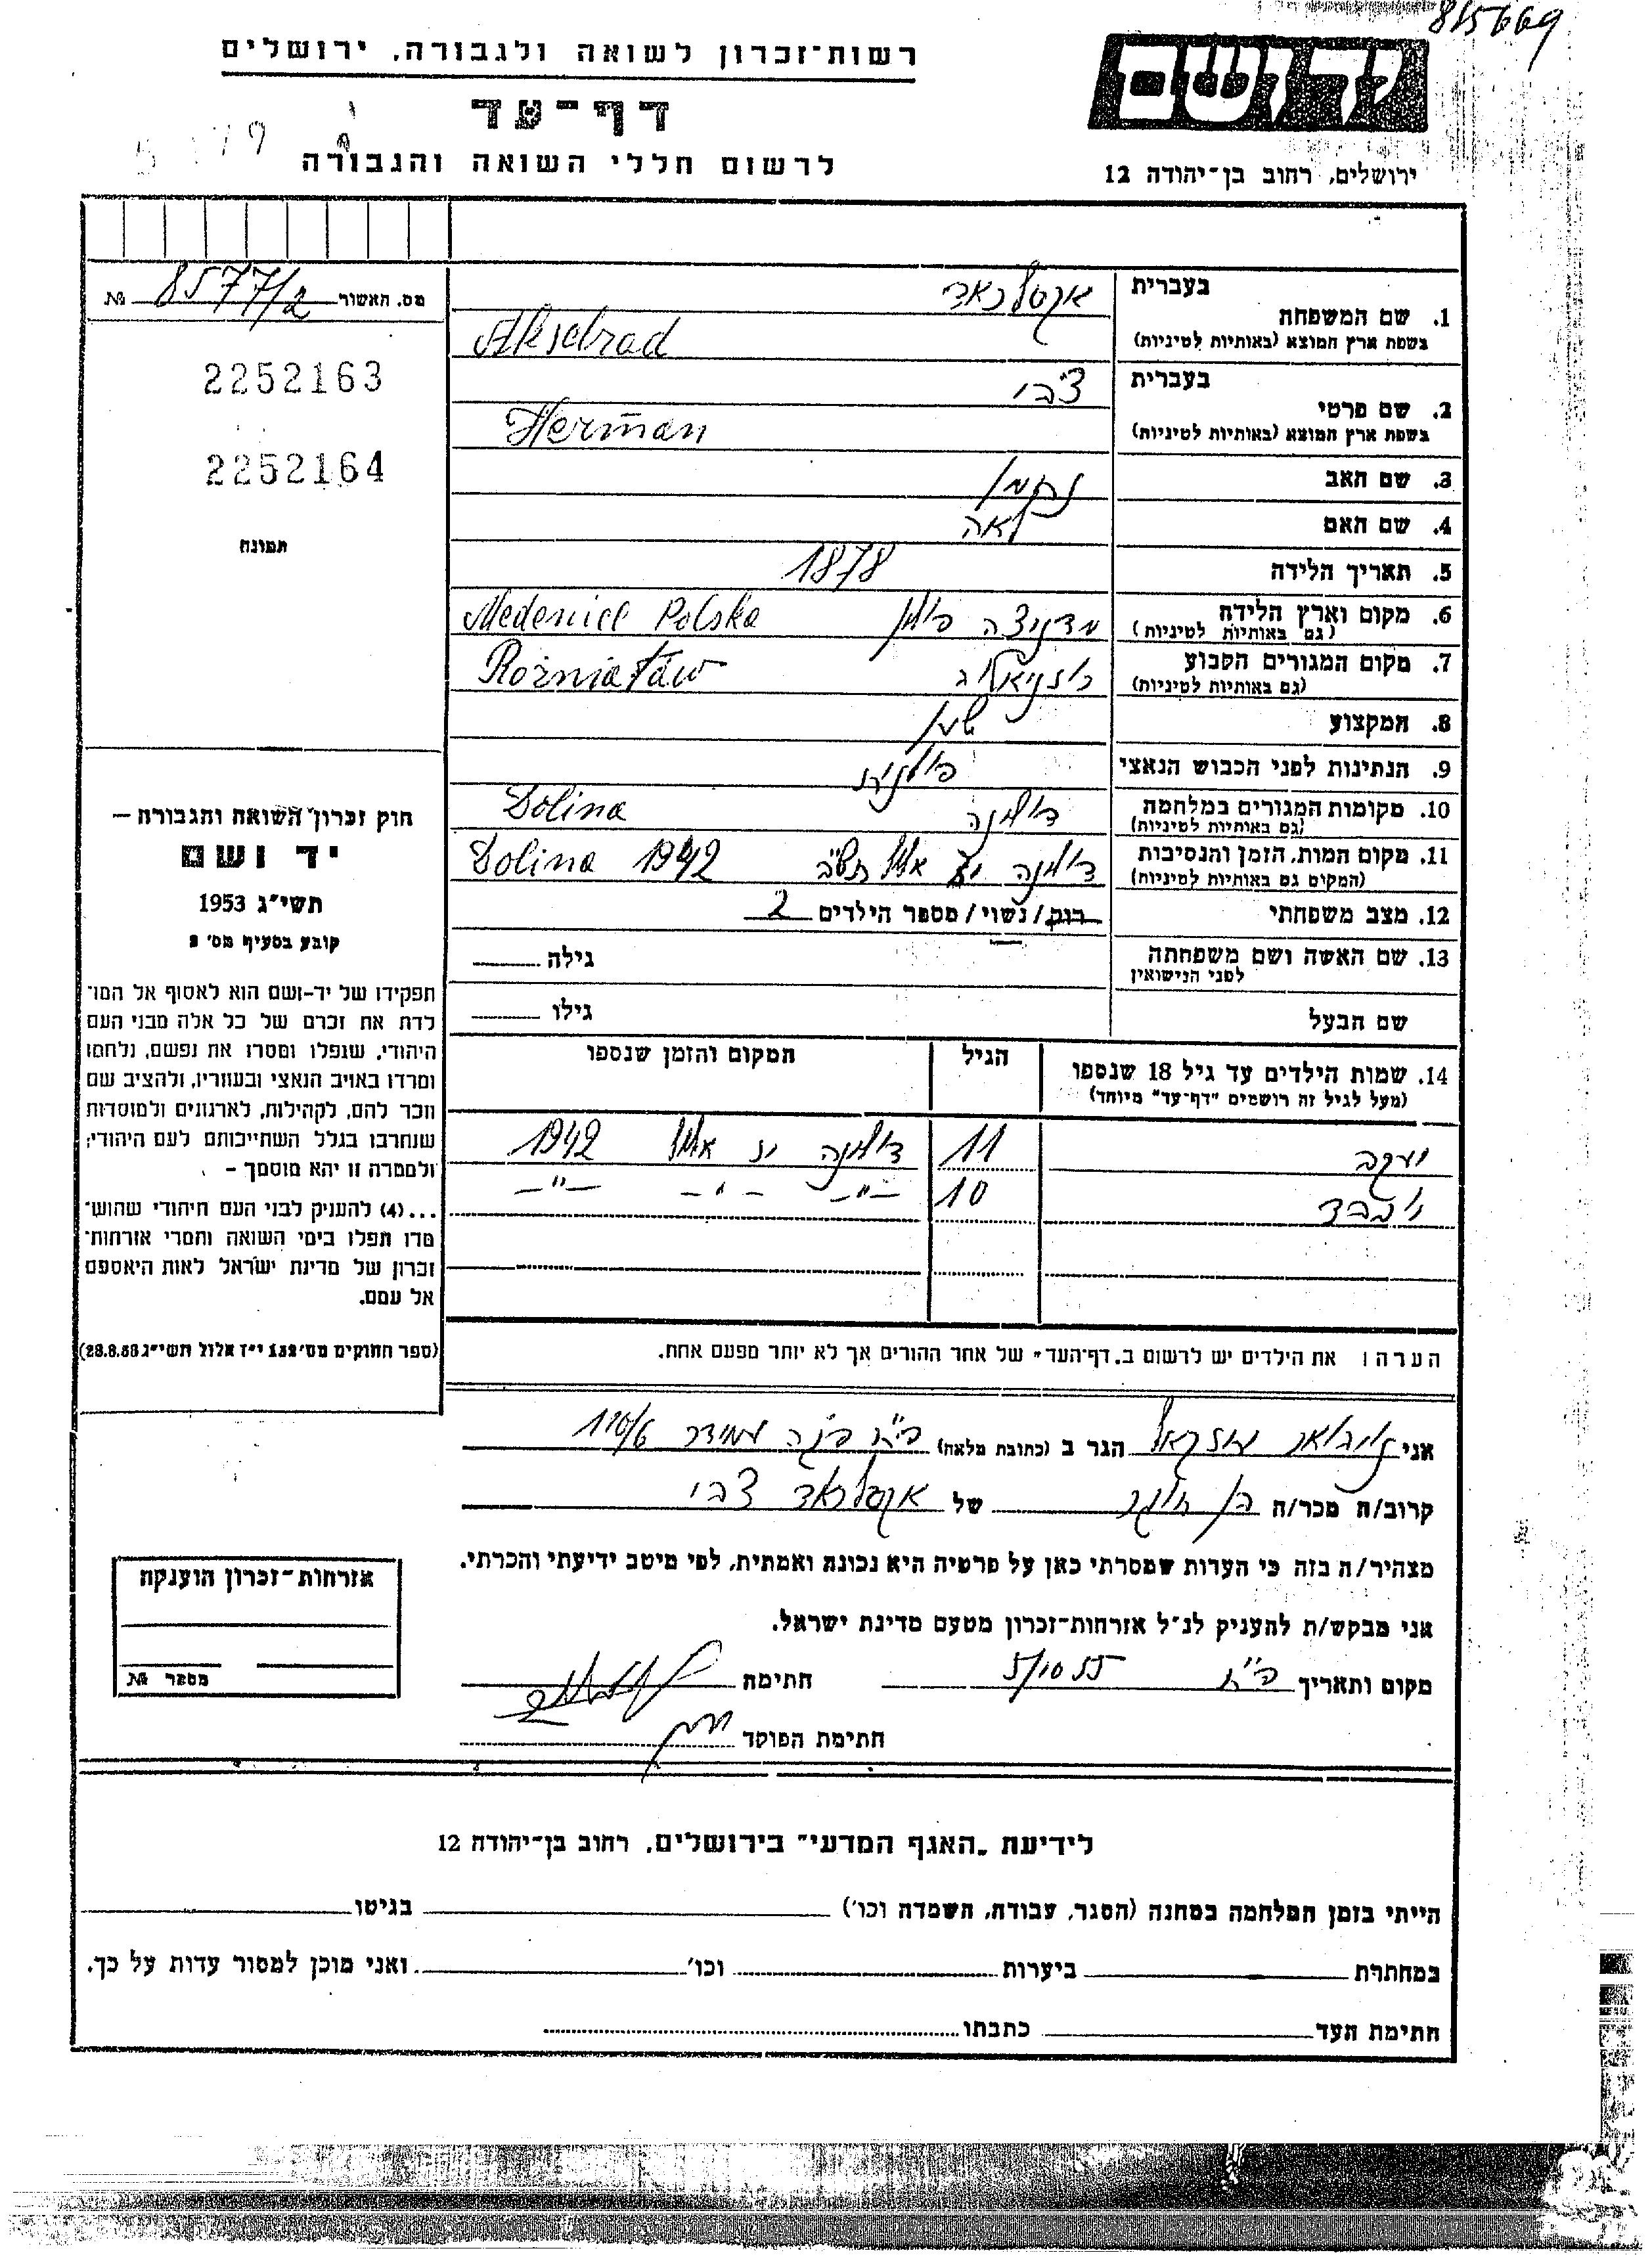 815669
רשות־זכרון לשואה ולגבורה, ירושלים
דף־עד
לרשום חללי השואה והגבורה
ידושם
ירושלים, רחוב בן־יהודה 12
מס. האשור 8577/2 №
2252163
2252164
תמונה
בעברית אקסלראד
1. שם המשפחה
בשפת ארץ המוצא (באותיות לטיניות) Akselrad
בעברית צבי
2. שם פרטי
בשפת ארץ המוצא (באותיות לטיניות) Herman
3. שם האב נחמן
4. שם האם לאה
5. תאריך הלידה 1878
6. מקום וארץ הלידה מדניצה פולין Medenice Polska
(גם באותיות לטיניות)
7. מקום המגורים הקבוע רוזניאלוב Rożniatów
(גם באותיות לטיניות)
8. המקצוע
9. הנתינות לפני הכבוש הנאצי פולנית
10. מקומות המגורים במלחמה דולינה Dolina
(גם באותיות לטיניות)
11. מקום המות, הזמן והנסיבות דולינה אלול תש"ב Dolina 1942
(המקום גם באותיות לטיניות)
12. מצב משפחתי רווק/נשוי/מספר הילדים 2
13. שם האשה ושם משפחתה גילה
לפני הנישואין
שם הבעל גילו
14. שמות הילדים עד גיל 18 שנספו הגיל המקום והזמן שנספו
(מעל לגיל זה רושמים "דף־עד" מיוחד)
יעקב 11 דולינה יז אלול 1942
10 —"— —"— —"—
הערה: את הילדים יש לרשום ב„דף־העד" של אחד ההורים אך לא יותר מפעם אחת.
חוק זכרון השואה והגבורה —
יד ושם
תשי"ג 1953
קובע בסעיף מס' 2
תפקידו של יד-ושם הוא לאסוף אל המו־
לדת את זכרם של כל אלה מבני העם
היהודי, שנפלו ומסרו את נפשם, נלחמו
ומרדו באויב הנאצי ובעוזריו, ולהציב שם
וזכר להם, לקהילות, לארגונים ולמוסדות
שנחרבו בגלל השתייכותם לעם היהודי;
ולמטרה זו יהא מוסמך —
...(4) להעניק לבני העם היהודי שהוש־
מדו ונפלו בימי השואה והמרי אזרחות־
זכרון של מדינת ישראל לאות היאספם
אל עמם.
(ספר החוקים מס' 132 י"ז אלול תשי"ג 28.8.53)
אני הגר ב (כתובת מלאה) 110/6
קרוב/ה מכר/ה של אקסלראד צבי
מצהיר/ה בזה כי העדות שמסרתי כאן על פרטיה היא נכונה ואמתית, לפי מיטב ידיעתי והכרתי.
אני מבקש/ת להעניק לנ"ל אזרחות־זכרון מטעם מדינת ישראל.
מקום ותאריך חתימה
חתימת הפוקד
אזרחות־זכרון הוענקה
מספר №
לידיעת „האגף המדעי" בירושלים, רחוב בן־יהודה 12
הייתי בזמן המלחמה במחנה (הסגר, עבודה, השמדה וכו') בגיטו
במחתרת ביערות וכו' ואני מוכן למסור עדות על כך.
חתימת העד כתבתו